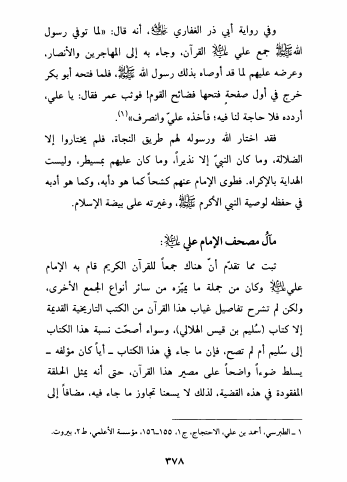 وفي رواية أبي ذر الغفاري ﷺ، أنه قال: «لما توفي رسول
الله ﷺ جمع علي القرآن، وجاء به إلى المهاجرين والأنصار،
وعرضه عليهم لما قد أوصاه بذلك رسول الله ﷺ، فلما فتحه أبو بكر
خرج في أول صفحةٍ فتحها فضائح القوم! فوثب عمر فقال: يا علي،
أردده فلا حاجة لنا فيه؛ فأخذه عليّ وانصرف»(١).
فقد اختار الله ورسوله لهم طريق النجاة، فلم يختاروا إلا
الضلالة، وما كان النبيّ إلا نذيراً، وما كان عليهم بمسيطر، وليست
الهداية بالإكراه. فطوى الإمام عنهم كشحاً كما هو دأبه، وكما هو أدبه
في حفظه لوصية النبي الأكرم ﷺ، وغيرته على بيضة الإسلام.
مآلُ مصحف الإمام علي:
ثبت مما تقدّم أنّ هناك جمعاً للقرآن الكريم قام به الإمام
علي وكان من جملة ما يميّزه من سائر أنواع الجمع الأخرى،
ولكن لم تشرح تفاصيل غياب هذا القرآن من الكتب التاريخية القديمة
إلا كتاب (سُليم بن قيس الهلالي)، وسواء أصحّت نسبة هذا الكتاب
إلى سُليم أم لم تصح، فإن ما جاء في هذا الكتاب ـ أياً كان مؤلفه ـ
يسلط ضوءاً واضحاً على مصير هذا القرآن، حتى أنه يمثل الحلقة
المفقودة في هذه القضية، لذلك لا يسعنا تجاوز ما جاء فيه، مضافاً إلى
١ ـ الطبرسي، أحمد بن علي، الاحتجاج، ج١، ١٥٥ـ١٥٦، مؤسسة الأعلمي، ط٢، بيروت.
٣٧٨